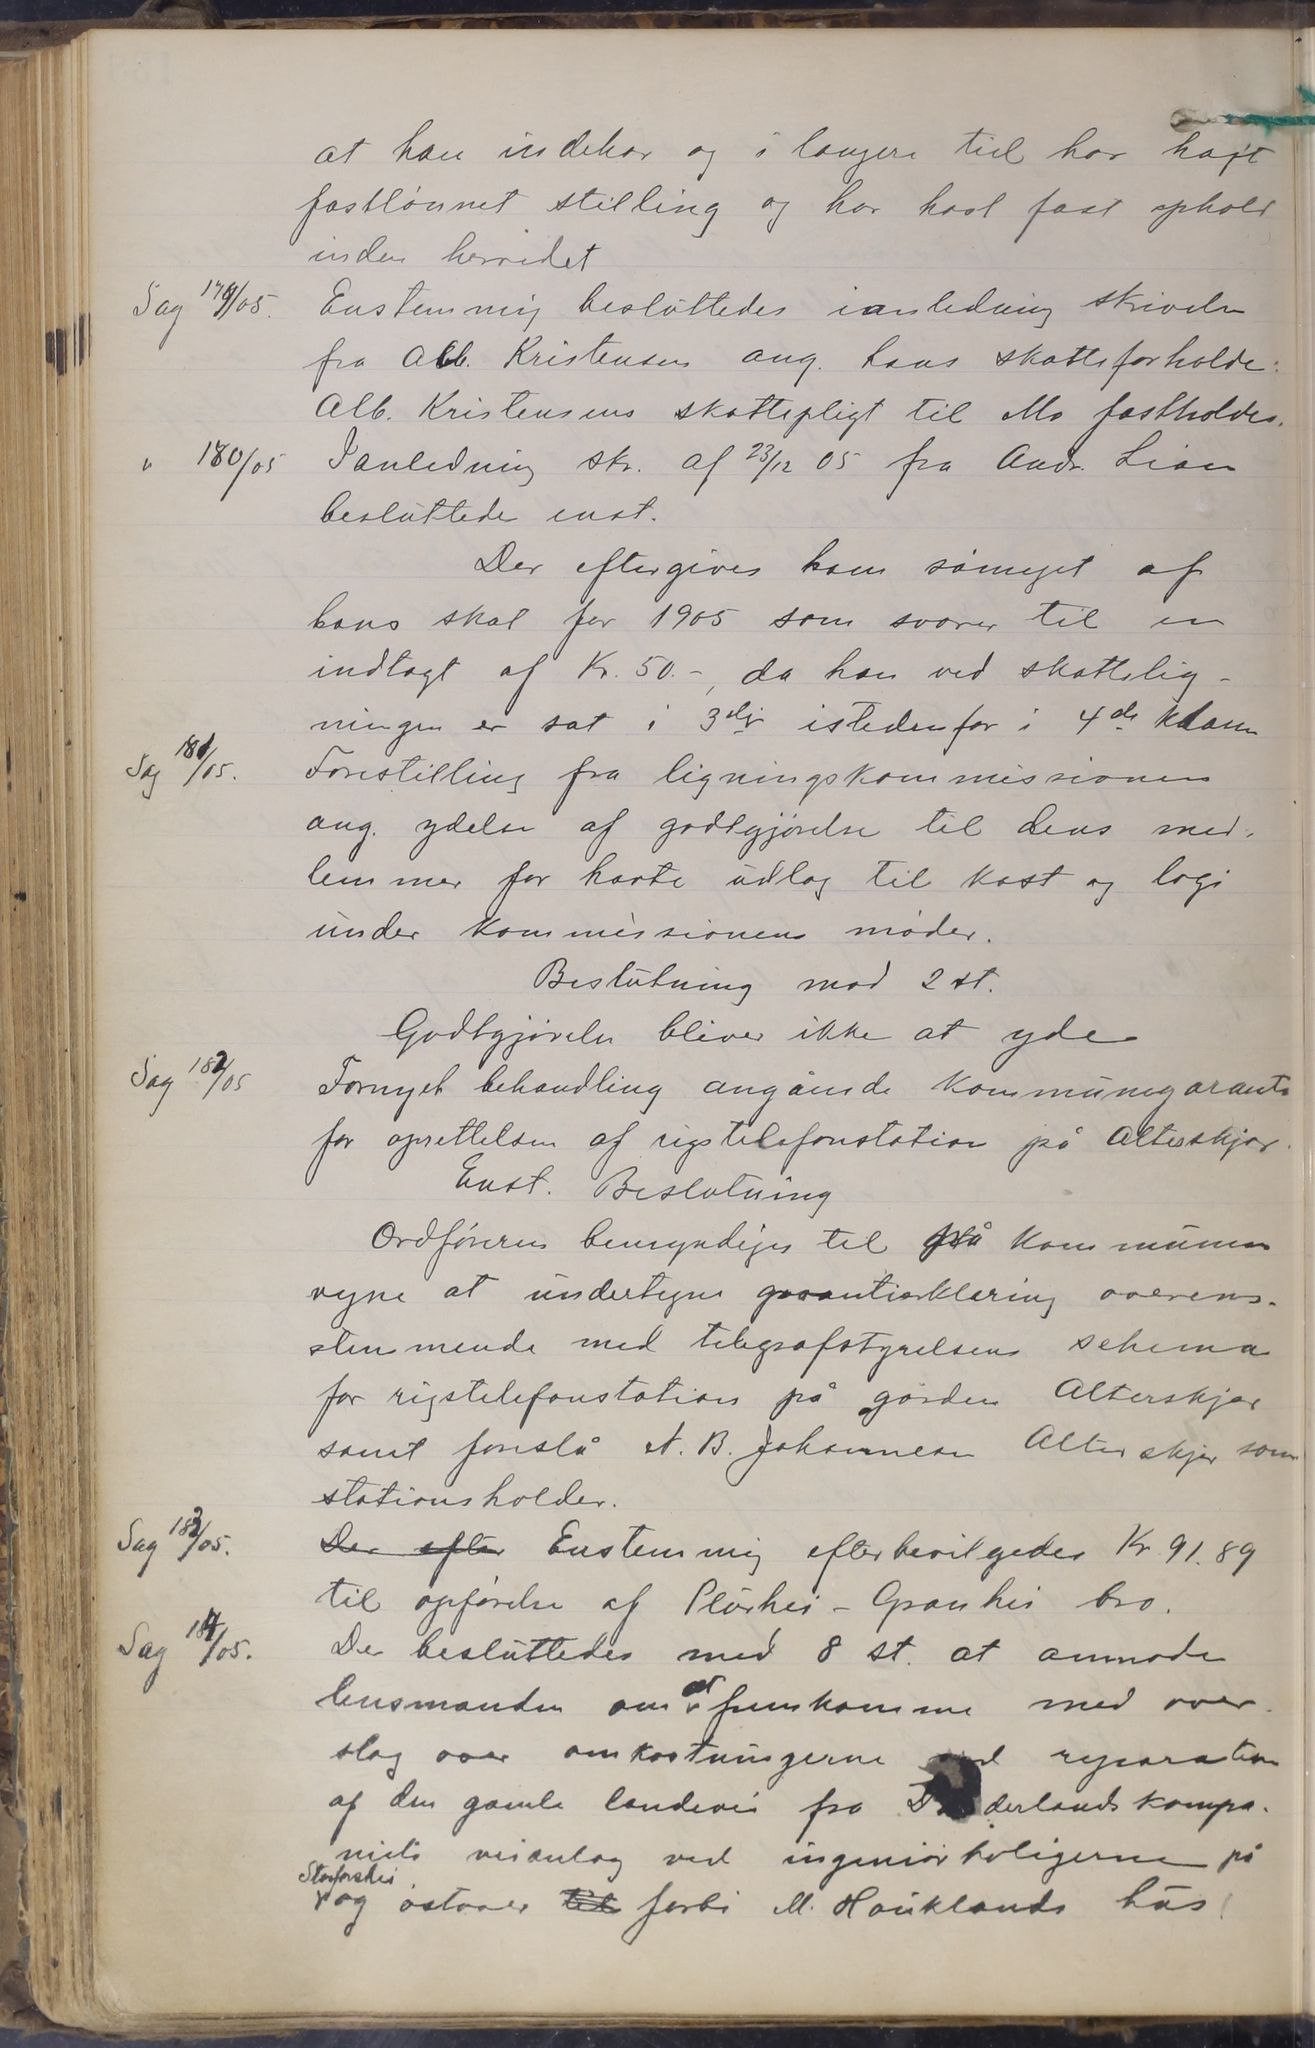 at han indehar og i længere tid har havt
fastlønnet stilling og har havt fast ophold
inden herredet
Sag 179/05. Enstemmig besluttedes ianledning skrivelse
fra Alb. Kristensen ang. hans skatteforholde:
Alb. Kristensens skattepligt til Mo fastholdes.
" 180/05 Ianledning skr. af 23/12 05 fra Andr. Lian
besluttede enst.
Der eftergives ham såmeget af
hans skat for 1905 som svarer til en
indtægt af Kr. 50.-, da han ved skattelig-
ningen er sat i 3die istedenfor i 4de klasse
Sag 181/05. Forestilling fra ligningskommissionen
ang. ydelse af godtgjørelse til dens med-
lemmer for havte udlæg til kost og logi
under kommissionens møder.
Beslutning mod 2 st.
Godtgjørelse bliver ikke at yde
Sag 182/05 Fornyet behandling angående kommunegaranti
for oprettelsen af rigstelefonstation på Alterskjær.
Enst. Beslutning
Ordføreren bemyndiges til på kommunens
vegne at undertegne garantierklæring overens-
stemmende med telegrafstyrelsens schema
for rigstelefonstation på gården Alterskjær
samt foreslå N. B. Johannesen Alterskjær som
stationsholder.
Sag 183/05. Der efter Enstemmig efterbevilgedes Kr. 91.89
til opførelse af Plurhei - Granhei bro.
Sag 184/05. Der besluttedes med 8 st. at anmode
lensmanden om at fremkomme med over-
slag over omkostningerne ved reparation
af den gamle landevei fra Dunderlandskompa-
niets veianlæg ved ingeniørboligerne på
Storforshei
og østover til forbi M. Hauklands hus